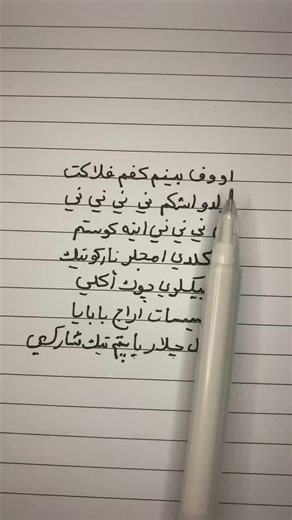 اووف بينم كفم فلاكت
بلدو اشكم ني ني ني ني
ني ني ني اينه كوستم
كلدي امجلر نارکوتيك
بيكلوي چوك أكلي
اراح بابايا
چلار يا پيتم تيك شاركي